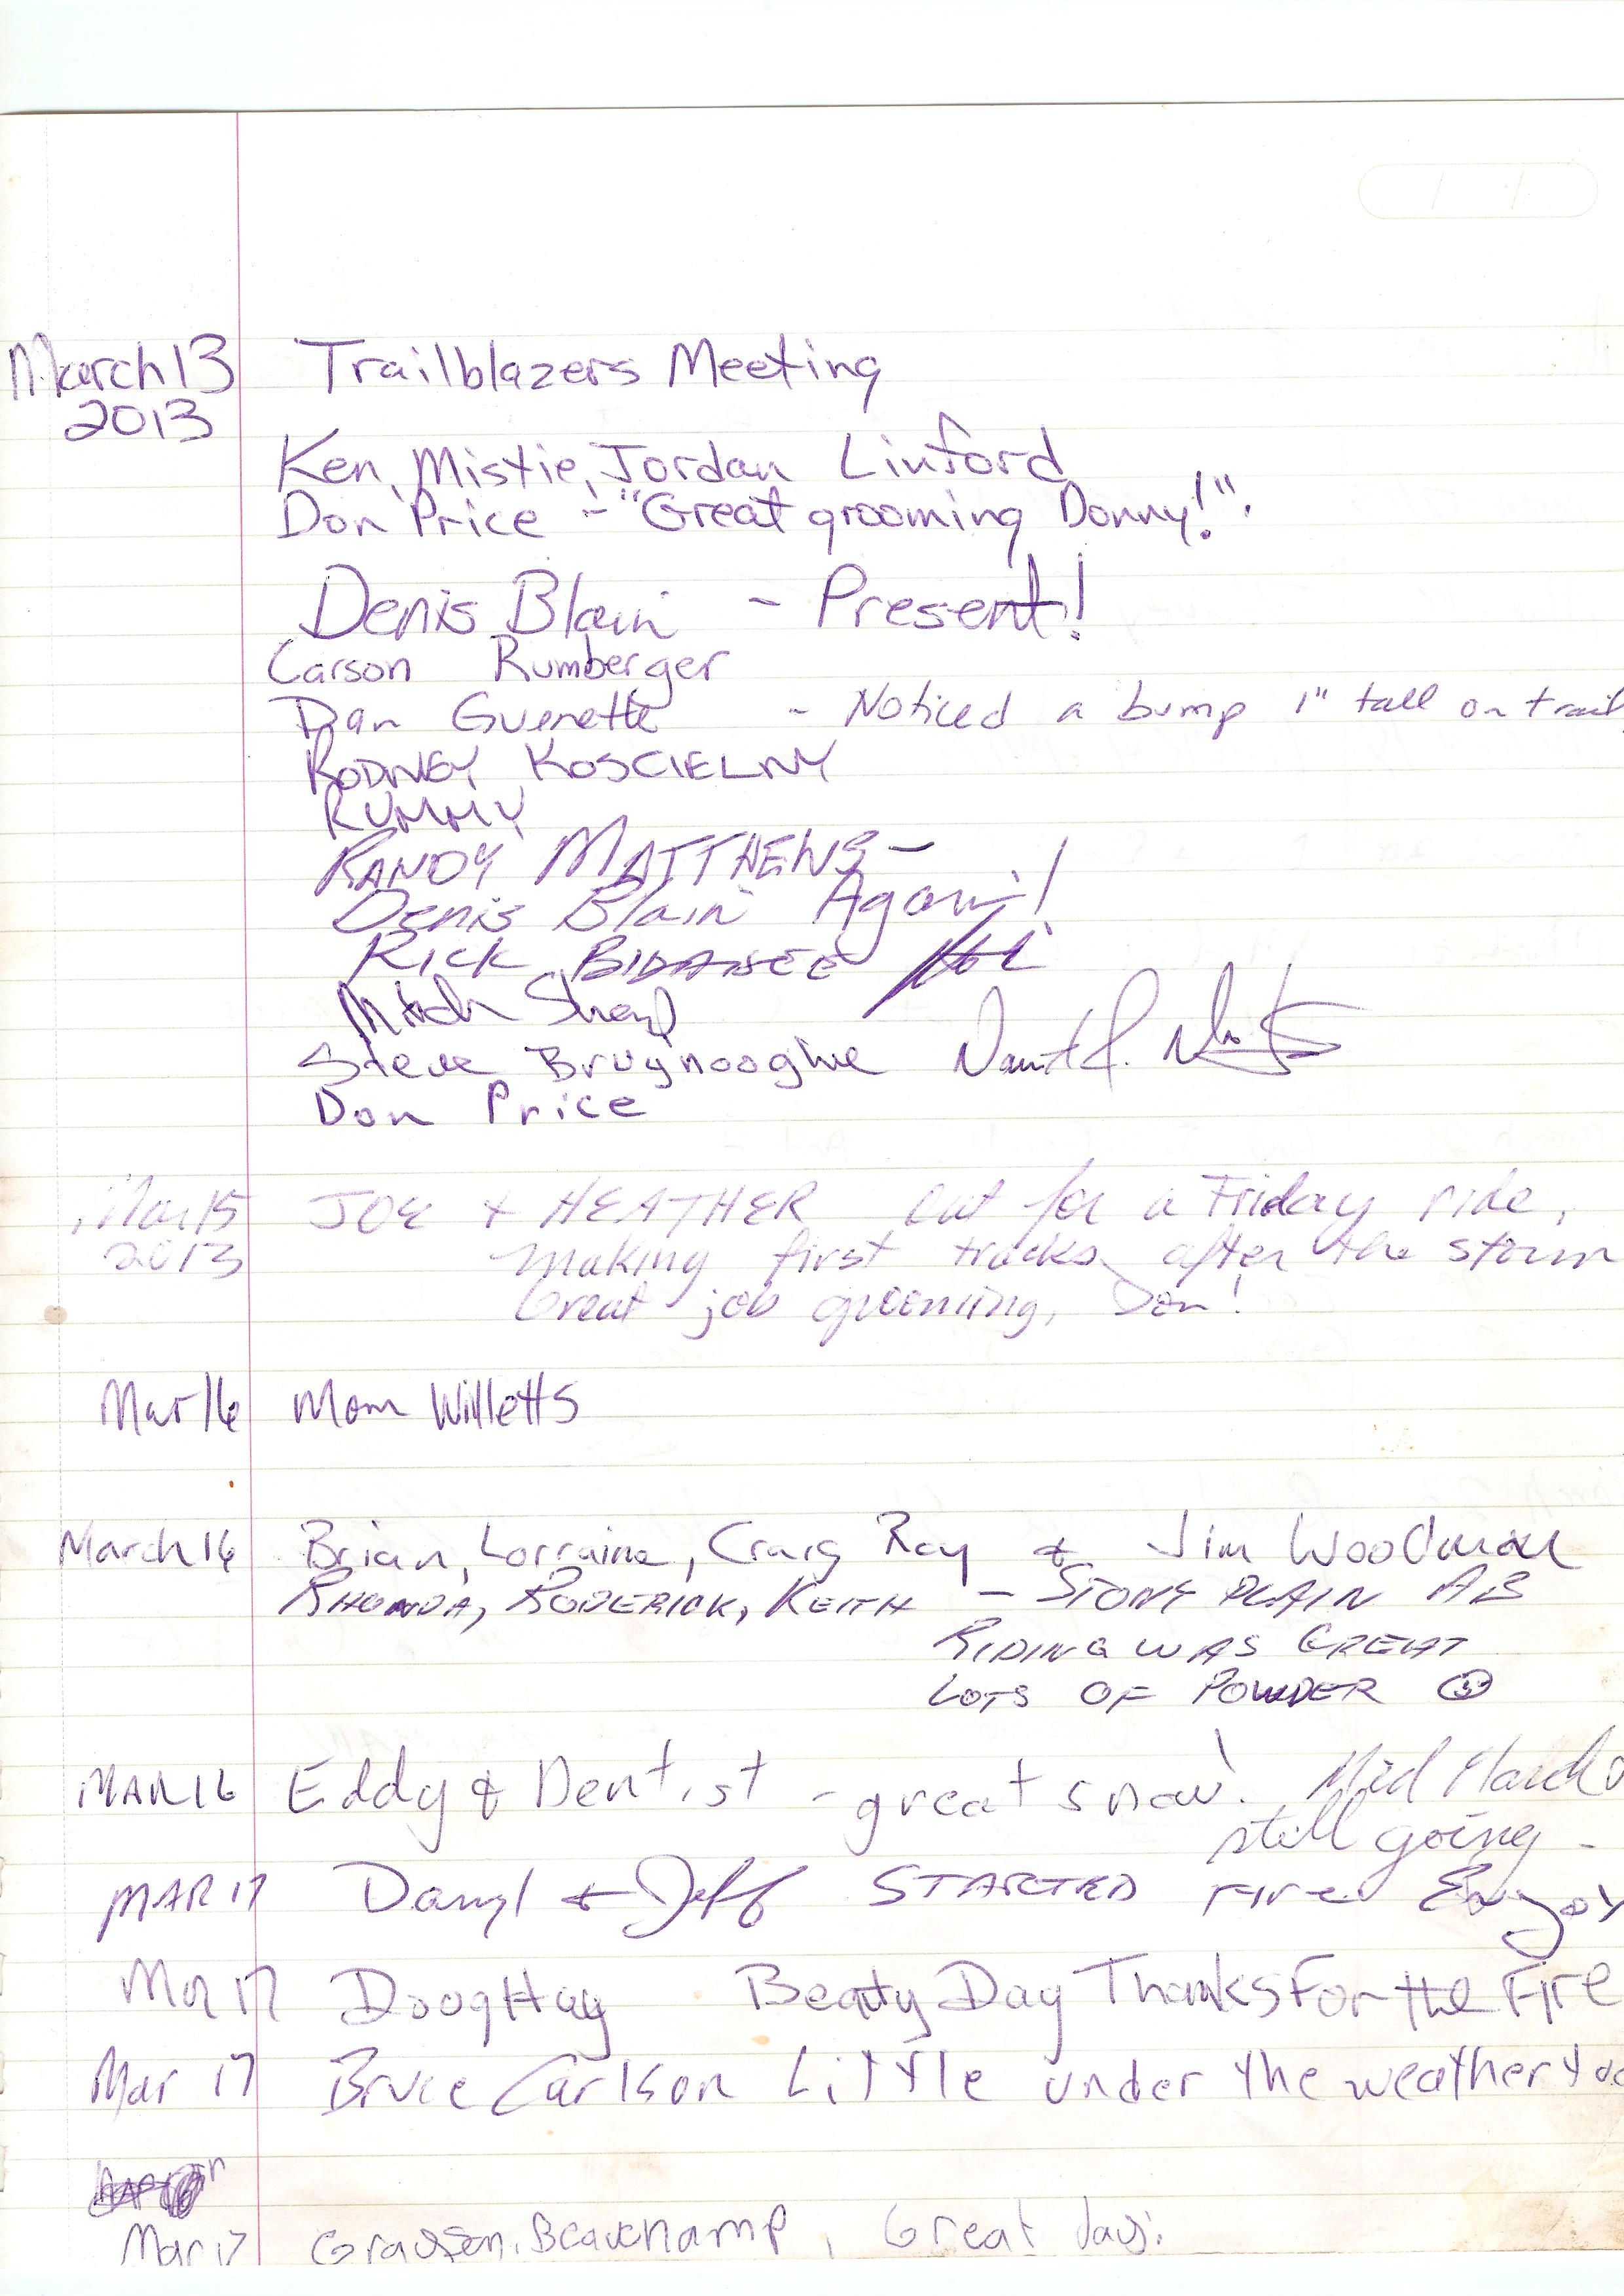 March 13 Trailblazers Meeting
2013
Ken, Mistie, Jordan Linford
Don Price - "Great grooming Donny!".
Denis Blain - Present!
Carson Rumberger
Dan Guenette - Noticed a bump 1" tall on trail
RODNEY KOSCIELNY
RUMMY
RANDY MATTHEWS -
Denis Blain Again!
RICK
Mitch Sharp
Steve Bruynooghe
Don Price
Mar 15 JOE & HEATHER out for a Friday ride,
2013 making first tracks after the storm
Great job grooming, Don!
Mar 16 Mom Willetts
March 16 Brian, Lorraine, Craig Ray & Jim Woodman
RHONDA, RODERICK, KEITH - STONY PLAIN AB
RIDING WAS GREAT
LOTS OF POWDER
MAR 16 Eddy & Dentist - great snow! Mid March &
still going -
MAR 17 Daryl & Jeff STARTED Fire Enjoy
Mar 17 Doug Hay Beauty Day Thanks For the Fire
Mar 17 Bruce Carlson Little under the weather
Mar 17 Beauchamp, Great day!